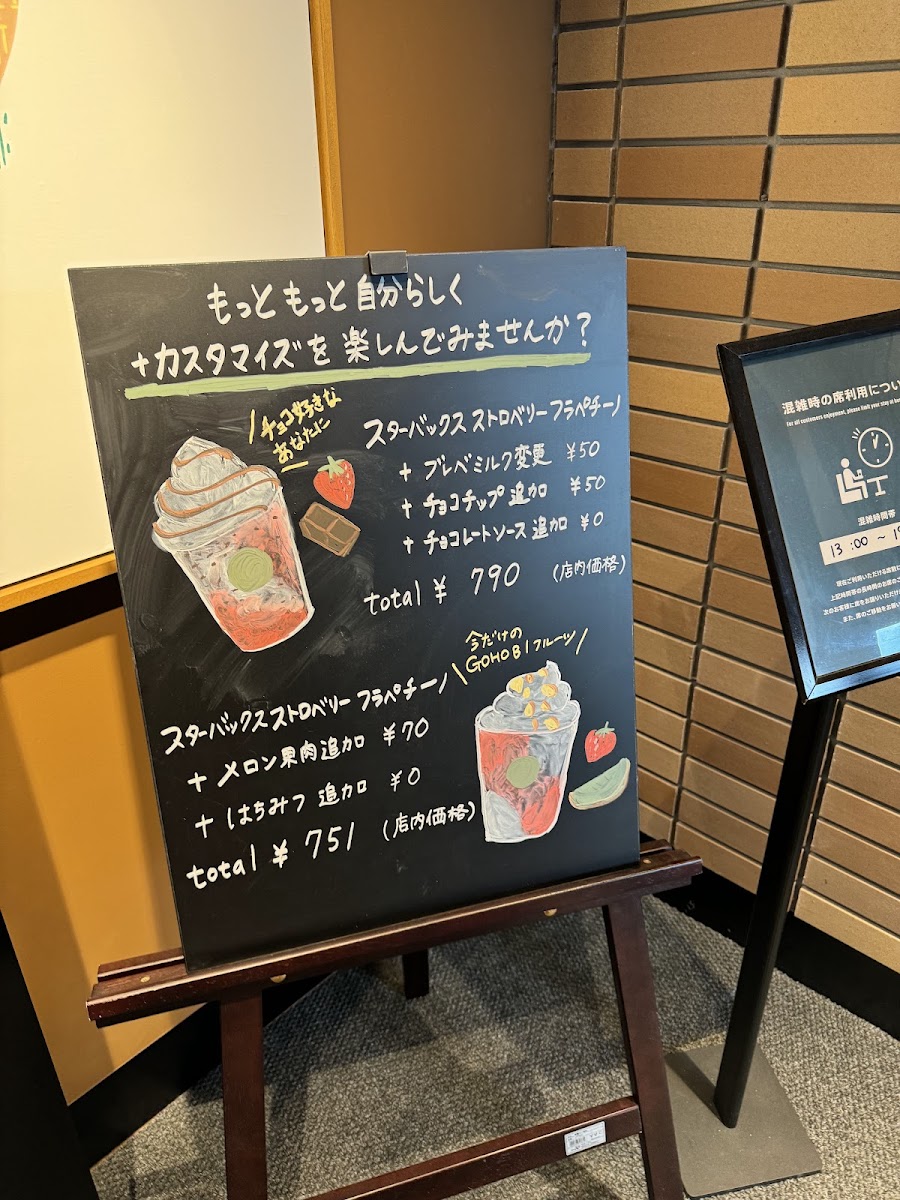 もっと もっと 自分らしく
+カスタマイズを 楽しんでみませんか?
チョコ好きな
あなたに
スターバックス ストロベリーフラペチーノ
+ ブレベミルク変更 ¥50
+ チョコチップ 追加 ¥50
+ チョコレートソース 追加 ¥0
total ¥ 790 (店内価格)
今だけの
GOHOBIフルーツ
スターバックスストロベリー フラペチーノ
+ メロン果肉追加 ¥70
+ はちみつ 追加 ¥0
total ¥ 751 (店内価格)
混雑時の席利用につい
For all customers enjoyment, please limit your stay
混雑時間帯
13:00 ~
現在ご利用いただける席数に
上記時間帯の長時間のお席のご
次のお客様に席をお譲りいただけ
また、席のご移動をお願い